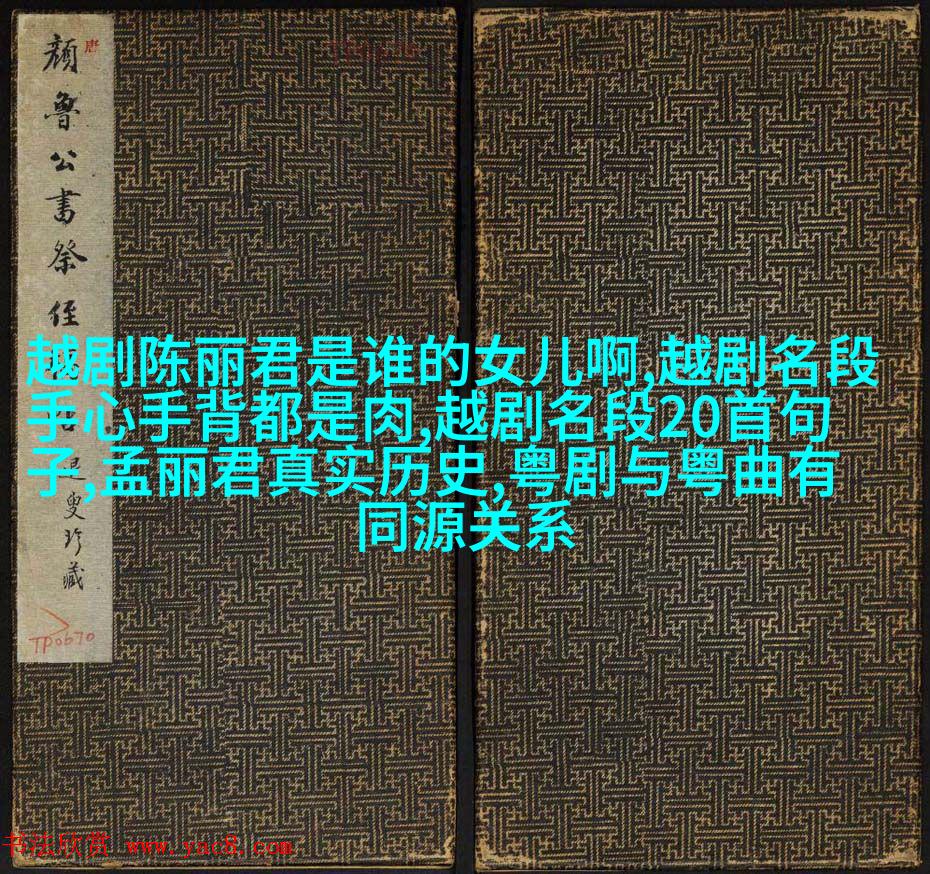 唐
颜鲁公书祭侄
越剧陈丽君是谁的女儿啊,越剧名段
手心手背都是肉,越剧名段20首句
子,孟丽君真实历史,粤剧与粤曲有
同源关系
叟珍藏
TP0670
书法欣赏 www.yac8.com